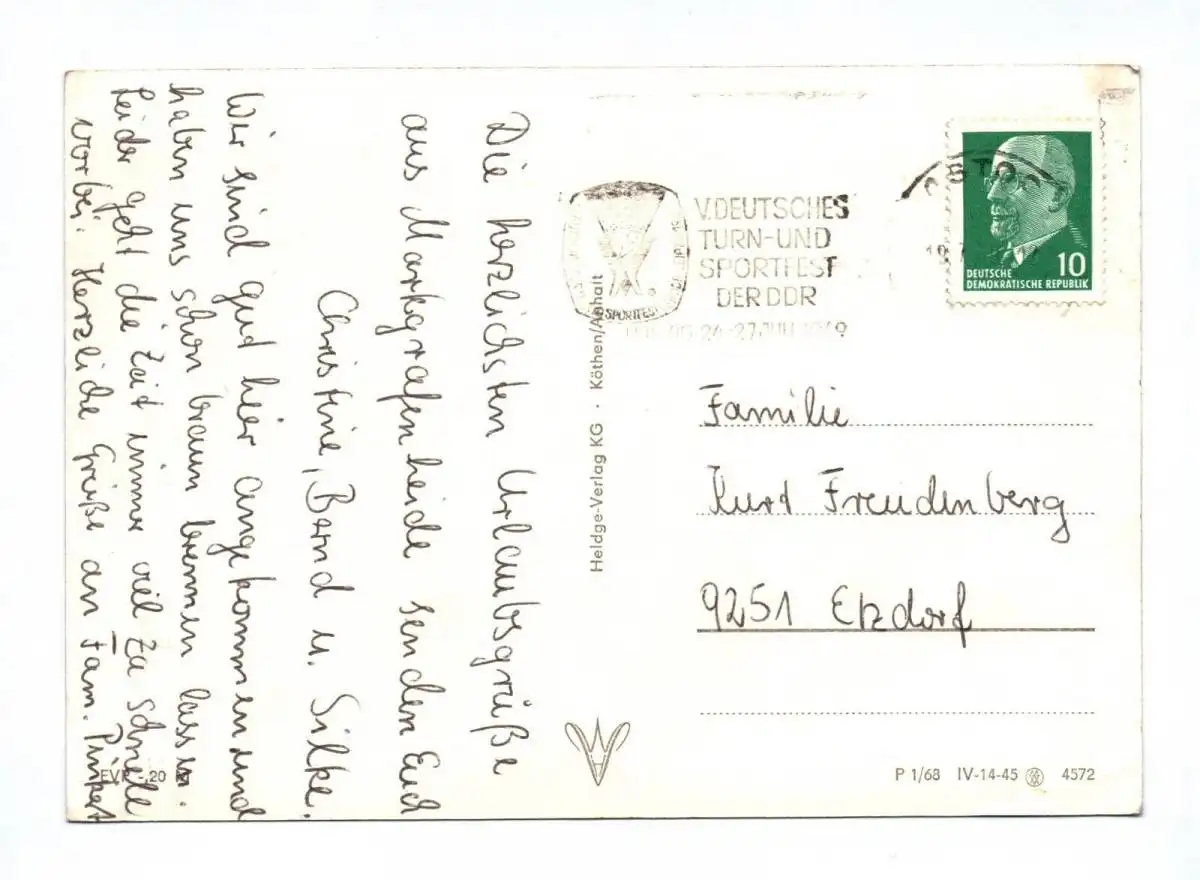 Die herzlichsten Urlaubsgrüße
aus Markgrafenheide senden Euch
Christine, Bernd u. Silke.
Wir sind gut hier angekommen und
haben uns schon braun brennen lassen.
Leider geht die Zeit immer viel zu schnell
vorbei. Herzliche Grüße an Fam.
EVP -,20 M
Heldge-Verlag KG · Köthen/Anhalt
V. DEUTSCHES
TURN-UND
SPORTFEST
DER DDR
24.-27. JULI 1969
SPORTFEST
OSTOC
DEUTSCHE
DEMOKRATISCHE REPUBLIK
10
Familie
Kurt Freudenberg
9251 Etzdorf
P 1/68 IV-14-45 4572